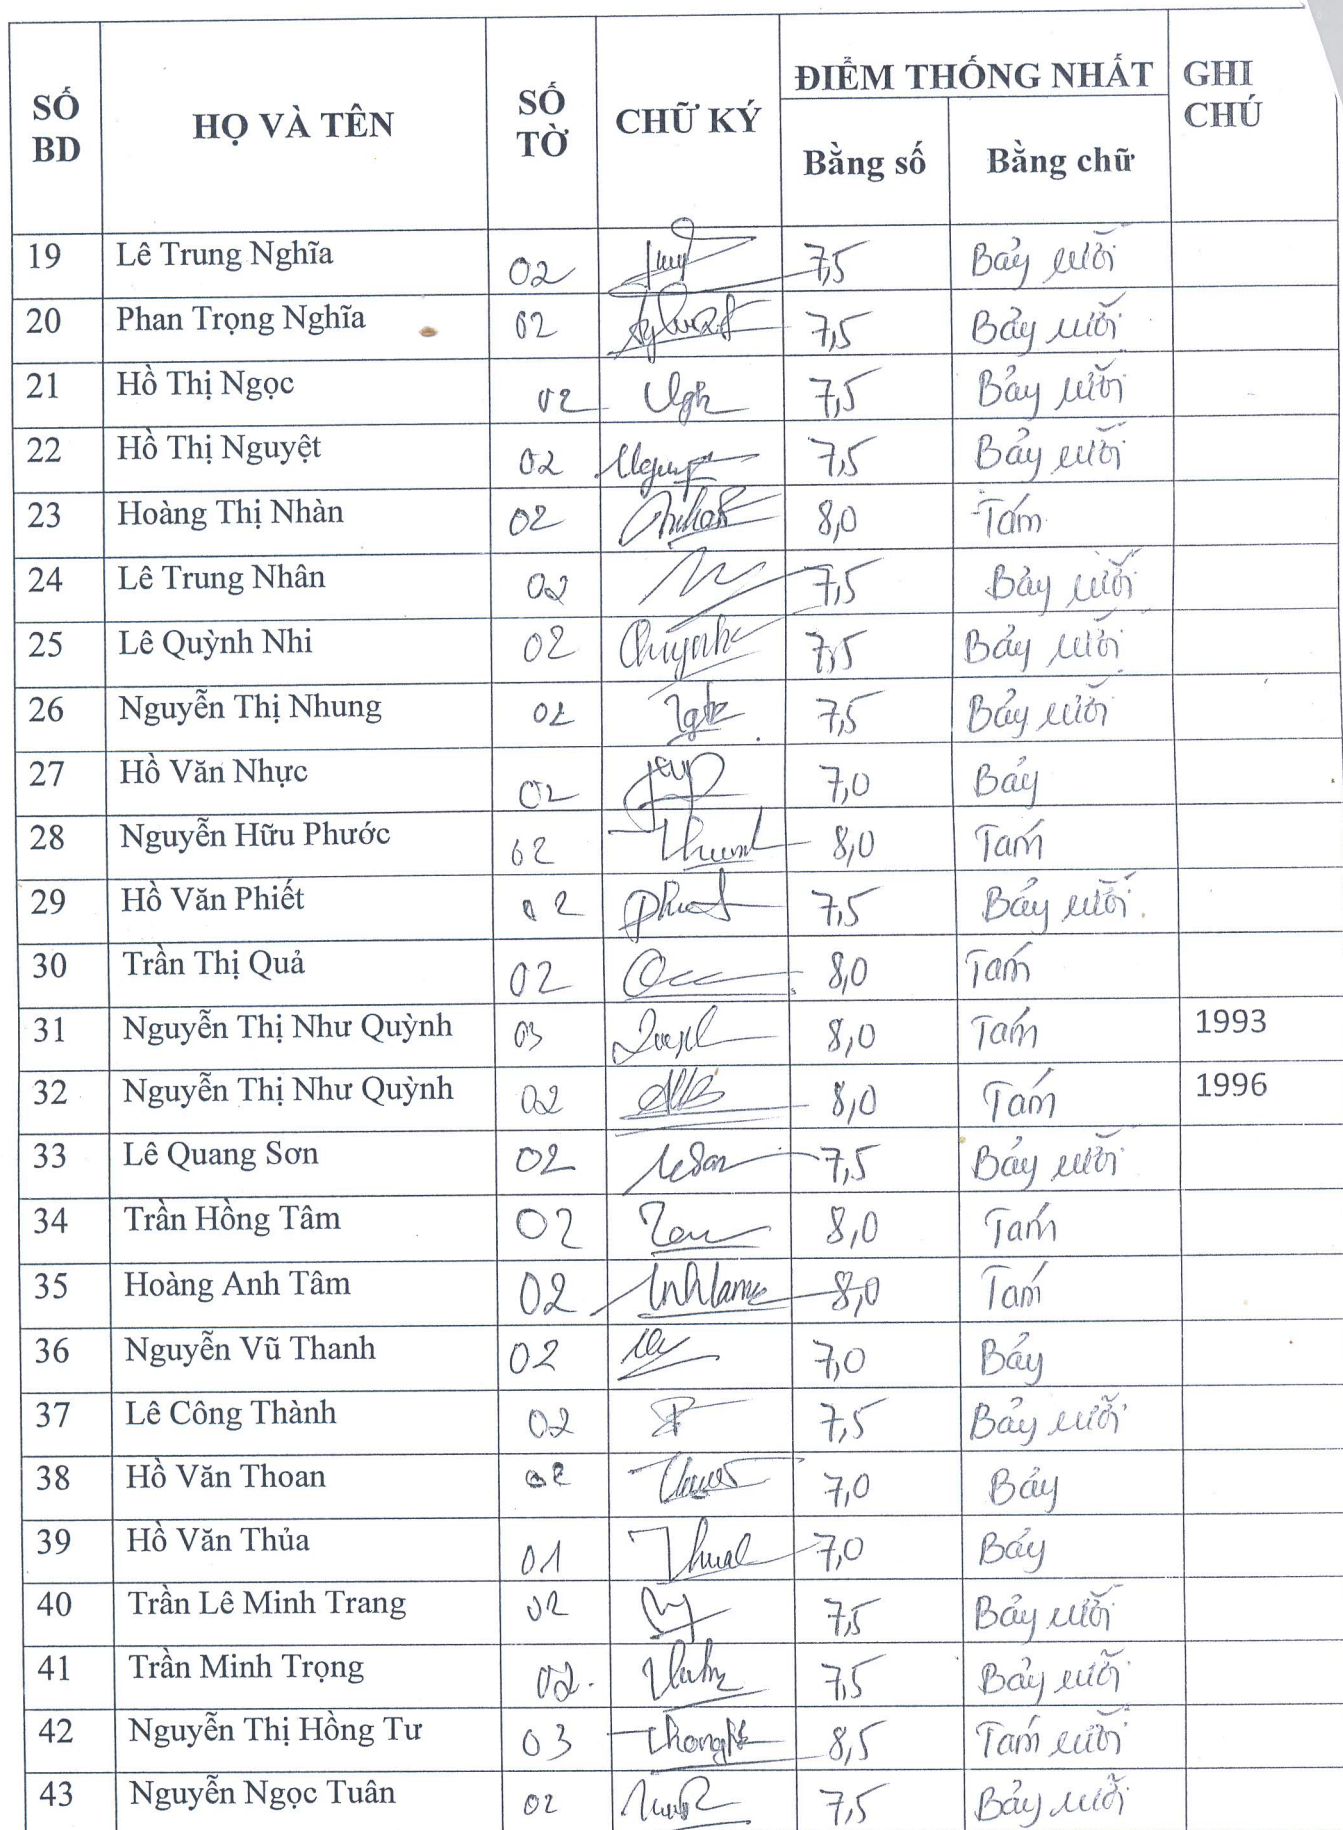 SỐ BD HỌ VÀ TÊN SỐ TỜ CHỮ KÝ ĐIỂM THỐNG NHẤT GHI CHÚ
Bằng số Bằng chữ
19 Lê Trung Nghĩa 02 7,5 Bảy rưỡi
20 Phan Trọng Nghĩa 02 7,5 Bảy rưỡi
21 Hồ Thị Ngọc 02 7,5 Bảy rưỡi
22 Hồ Thị Nguyệt 02 7,5 Bảy rưỡi
23 Hoàng Thị Nhàn 02 8,0 Tám
24 Lê Trung Nhân 02 7,5 Bảy rưỡi
25 Lê Quỳnh Nhi 02 Quỳnh 7,5 Bảy rưỡi
26 Nguyễn Thị Nhung 02 7,5 Bảy rưỡi
27 Hồ Văn Nhực 02 7,0 Bảy
28 Nguyễn Hữu Phước 02 8,0 Tám
29 Hồ Văn Phiết 02 7,5 Bảy rưỡi
30 Trần Thị Quả 02 8,0 Tám
31 Nguyễn Thị Như Quỳnh 03 8,0 Tám 1993
32 Nguyễn Thị Như Quỳnh 02 8,0 Tám 1996
33 Lê Quang Sơn 02 7,5 Bảy rưỡi
34 Trần Hồng Tâm 02 8,0 Tám
35 Hoàng Anh Tâm 02 8,0 Tám
36 Nguyễn Vũ Thanh 02 7,0 Bảy
37 Lê Công Thành 02 7,5 Bảy rưỡi
38 Hồ Văn Thoan 02 7,0 Bảy
39 Hồ Văn Thủa 01 7,0 Bảy
40 Trần Lê Minh Trang 02 7,5 Bảy rưỡi
41 Trần Minh Trọng 02. 7,5 Bảy rưỡi
42 Nguyễn Thị Hồng Tư 03 8,5 Tám rưỡi
43 Nguyễn Ngọc Tuân 02 7,5 Bảy rưỡi